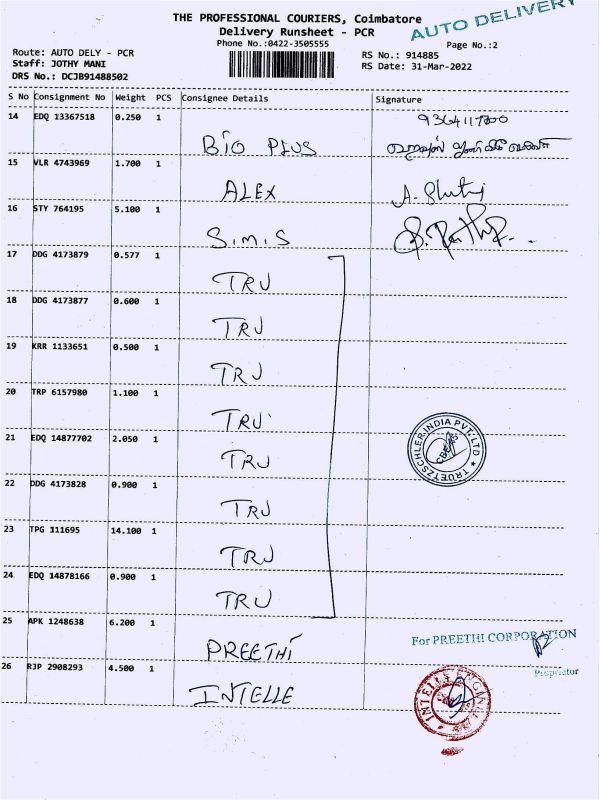 THE PROFESSIONAL COURIERS, Coimbatore
AUTO DELIVERY
Delivery Runsheet - PCR
Phone No.:0422-3505555
Page No.:2
Route: AUTO DELY - PCR
Staff: JOTHY MANI
DRS No.: DCJB91488502
RS No.: 914885
RS Date: 31-Mar-2022
S No Consignment No Weight PCS Consignee Details Signature
14 EDQ 13367518 0.250 1
BIO PLUS
15 VLR 4743969 1.700 1
ALEX
16 STY 764195 5.100 1
S.M.S
17 DDG 4173879 0.577 1
TRU
18 DDG 4173877 0.600 1
TRU
19 KRR 1133651 0.500 1
TRU
20 TRP 6157980 1.100 1
TRU
21 EDQ 14877702 2.050 1
TRU
TRUETZSCHLER INDIA PVT. LTD
22 DDG 4173828 0.900 1
TRU
23 TPG 111695 14.100 1
TRU
24 EDQ 14878166 0.900 1
TRU
25 APK 1248638 6.200 1
PREETHI
For PREETHI CORPORATION
Proprietor
26 RJP 2908293 4.500 1
INTELLE